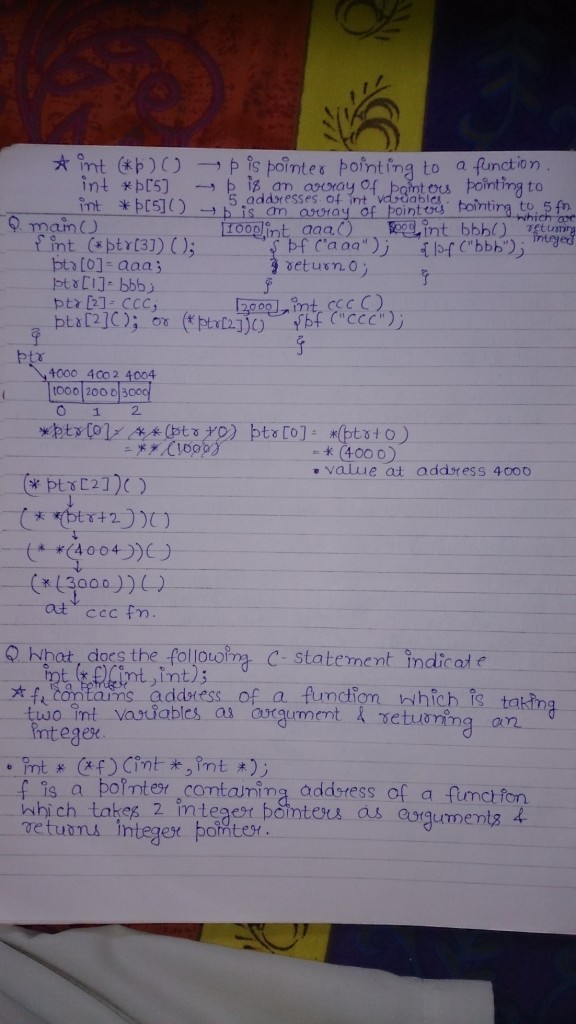 ☆ int (*p)() → p is pointer pointing to a function.
int *p[5] → p is an array of pointers pointing to
5 addresses of int variables.
int *p[5]() → p is an array of pointers pointing to 5 fn
which are returning integers
Q. main()
{ int (*ptr[3])();
ptr[0]=aaa;
ptr[1]=bbb;
ptr[2]=ccc;
ptr[2](); or (*ptr[2])()
}
1000 int aaa()
{ pf("aaa");
return 0;
}
int bbb()
{ pf("bbb");
}
3000 int ccc()
{pf("ccc");
}
ptr
4000 4002 4004
1000 2000 3000
0 1 2
*ptr[0]= **(ptr+0) ptr[0]= *(ptr+0)
= **(1000) = *(4000)
• value at address 4000
(*ptr[2])()
↓
(**(ptr+2))()
↓
(**(4004))()
↓
(*(3000))()
↓
at ccc fn.
Q. What does the following C-statement indicate
int (*f)(int, int);
☆ f is a pointer contains address of a function which is taking
two int variables as argument & returning an
integer.
• int * (*f) (int *, int *);
f is a pointer containing address of a function
which takes 2 integer pointers as arguments &
returns integer pointer.